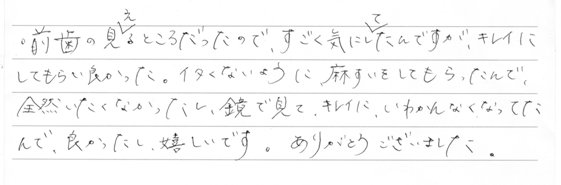 。前歯の見えるところだったので、すごく気にしてたんですが、キレイに
してもらい良かった。イタくないように、麻すいをしてもらったんで、
全然いたくなかったし、鏡で見て、キレイに、いわかんなくなってた
んで、良かったし、嬉しいです。ありがとうございました。